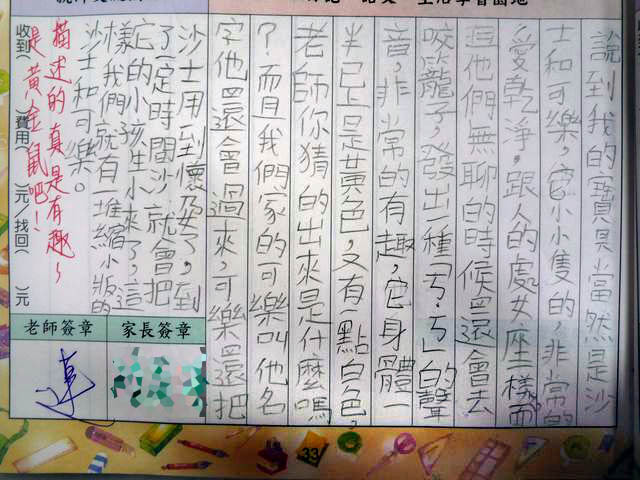 說到我的寶貝當然是沙
士和可樂,它小小隻的,非常的
愛乾淨,跟人的處女座一樣,而
且他們無聊的時候還會去
咬籠子,發出一種「ㄎ,ㄎ」的聲
音,非常的有趣,它身體一
半已上是黃色,又有一點白色,
老師你猜的出來是什麼嗎
?而且我們家的可樂叫他名
字他還會回過來,可樂還把
沙士用到懷孕了,到
了一定時間沙士就會把
它的小孩生小來了,這
樣我們就有一堆縮小版的
沙士和可樂。
描述的真是有趣~
是黃金鼠吧!
收到( )費用( )元/找回( )元
老師簽章 家長簽章
33